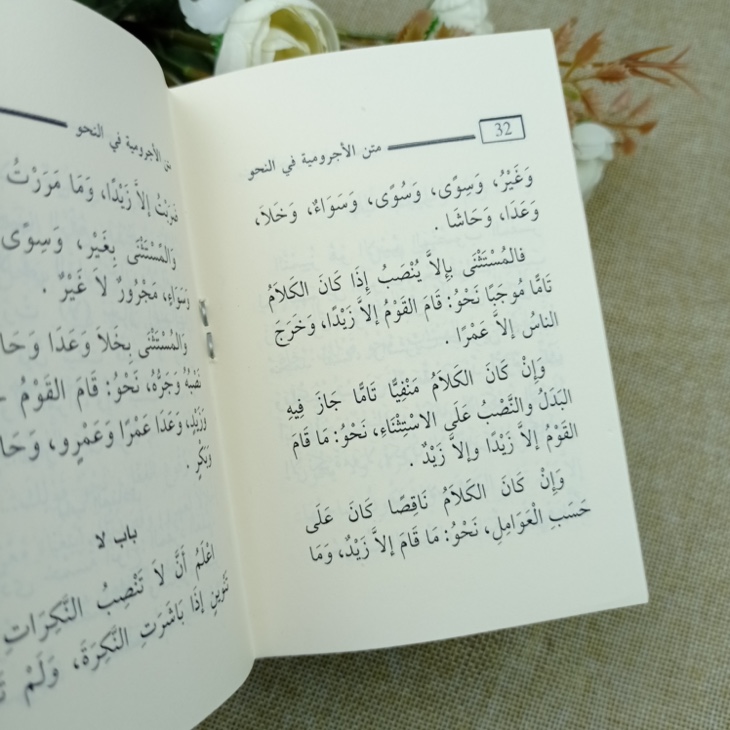 32 متن الأجرومية في النحو
وَغَيْرُ، وَسِوًى، وَسُوًى، وَسَوَاءٌ، وَخَلاَ،
وَعَدَا، وَحَاشَا .
فالمُسْتَثْنَى بِإلاَّ يُنْصَبُ إِذَا كَانَ الكَلاَمُ
تَامًّا مُوجَبًا نَحْوُ: قَامَ القَوْمُ إلاَّ زَيْدًا، وَخَرَجَ
الناسُ إلاَّ عَمْرًا .
وَإِنْ كَانَ الكَلاَمُ مَنْفِيًّا تَامًّا جَازَ فِيهِ
البَدَلُ والنَّصْبُ عَلَى الاسْتِثْنَاءِ، نَحْوُ: مَا قَامَ
القَوْمُ إلاَّ زَيْدًا وإلاَّ زَيْدٌ .
وَإِنْ كَانَ الكَلاَمُ نَاقِصًا كَانَ عَلَى
حَسَبِ الْعَوَامِلِ، نَحْوُ: مَا قَامَ إلاَّ زَيْدٌ، وَمَا
متن الأجرومية في النحو
ضَرَبْتُ إلاَّ زَيْدًا، وَمَا مَرَرْتُ
وَالمُسْتَثْنَى بِغَيْرِ، وَسِوًى
وَسَوَاءٍ، مَجْرُورٌ لاَ غَيْرُ .
وَالمُسْتَثْنَى بِخَلاَ وَعَدَا
نَصْبُهُ وَجَرُّهُ، نَحْوُ: قَامَ القَوْمُ
وَزَيْدٍ، وَعَدَا عَمْرًا وَعَمْرٍو،
وَبَكْرٍ .
باب لا
اعْلَمْ أَنَّ لاَ تَنْصِبُ النَّكِرَاتِ
تَنْوِينٍ إذَا بَاشَرَتِ النَّكِرَةَ، وَلَمْ